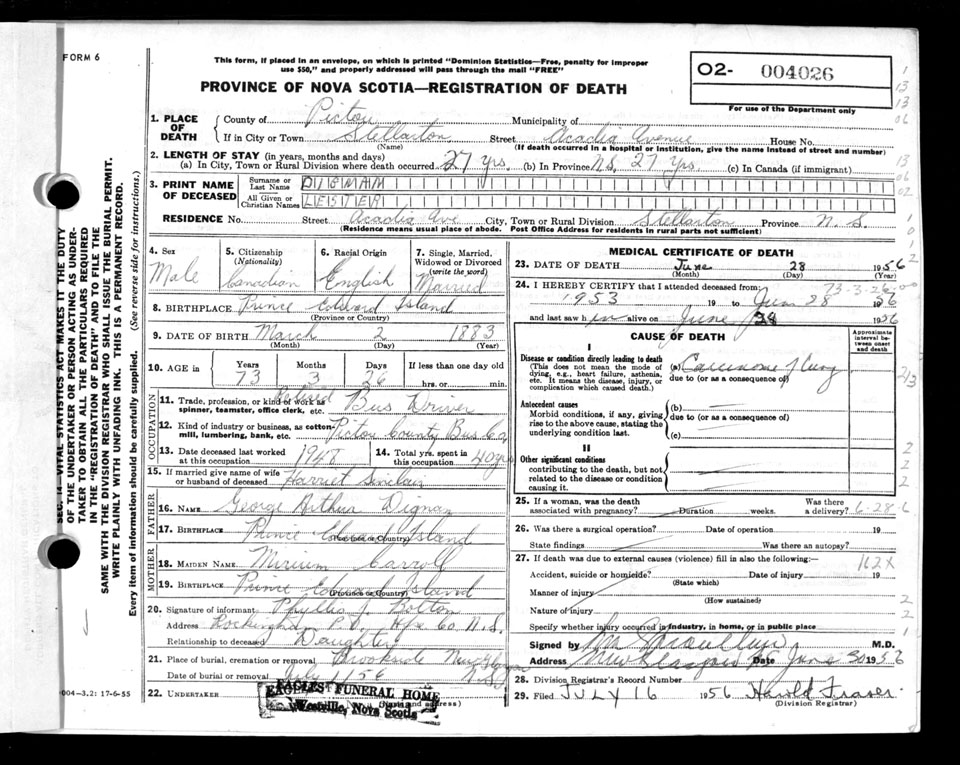 FORM 6
This form, if placed in an envelope, on which is printed "Dominion Statistics—Free, penalty for improper
use $50," and properly addressed will pass through the mail "FREE"
PROVINCE OF NOVA SCOTIA—REGISTRATION OF DEATH
O2- 004026
For use of the Department only
1. PLACE OF DEATH
County of Pictou Municipality of
If in City or Town Stellarton Street Acadia Avenue House No.
(Name) (If death occurred in a hospital or institution, give the name instead of street and number)
2. LENGTH OF STAY (in years, months and days)
(a) In City, Town or Rural Division where death occurred 27 yrs. (b) In Province N.S. 27 yrs (c) In Canada (if immigrant)
3. PRINT NAME OF DECEASED
Surname or Last Name DIGMAN
All Given or Christian Names LESTER
RESIDENCE No. Street Acadia Ave City, Town or Rural Division Stellarton Province N. S.
(Residence means usual place of abode. Post Office Address for residents in rural parts not sufficient)
4. Sex Male
5. Citizenship (Nationality) Canadian
6. Racial Origin English
7. Single, Married, Widowed or Divorced (write the word) Married
8. BIRTHPLACE Prince Edward Island
(Province or Country)
9. DATE OF BIRTH March 2 1883
(Month) (Day) (Year)
10. AGE in Years Months Days If less than one day old
73 3 26 hrs. or min.
OCCUPATION
11. Trade, profession, or kind of work as spinner, teamster, office clerk, etc. Retired Bus Driver
12. Kind of industry or business, as cotton-mill, lumbering, bank, etc. Pictou County Bus Co.
13. Date deceased last worked at this occupation 1948
14. Total yrs. spent in this occupation 40 yrs
15. If married give name of wife or husband of deceased Harriet Sinclair
FATHER
16. NAME George Arthur Dignan
17. BIRTHPLACE Prince Edward Island
(Province or Country)
MOTHER
18. MAIDEN NAME Mirium Carroll
19. BIRTHPLACE Prince Edward Island
(Province or Country)
20. Signature of informant Phyllis J. Bolton
Address Rockingham P.O. Hfx Co. N.S.
Relationship to deceased Daughter
21. Place of burial, cremation or removal Brookside New Glasgow
Date of burial or removal July 1 1956 N.S.
22. UNDERTAKER
(Name and address)
EAGLES' FUNERAL HOME
Westville, Nova Scotia
MEDICAL CERTIFICATE OF DEATH
23. DATE OF DEATH June 28 1956
(Month) (Day) (Year)
73-3-26-00
24. I HEREBY CERTIFY that I attended deceased from:
1953 19 to June 28 1956
and last saw him alive on June 28 1956
CAUSE OF DEATH
Approximate interval between onset and death
I
Disease or condition directly leading to death
(This does not mean the mode of dying, e.g., heart failure, asthenia, etc. It means the disease, injury, or complication which caused death.)
(a) Carcinoma of lung
due to (or as a consequence of)
Antecedent causes
Morbid conditions, if any, giving rise to the above cause, stating the underlying condition last.
(b)
due to (or as a consequence of)
(c)
II
Other significant conditions
contributing to the death, but not related to the disease or condition causing it.
25. If a woman, was the death associated with pregnancy? Duration weeks. Was there a delivery? 6-28-6
26. Was there a surgical operation? Date of operation 19
State findings Was there an autopsy?
27. If death was due to external causes (violence) fill in also the following: 162X
Accident, suicide or homicide? Date of injury 19
(State which)
Manner of injury
(How sustained)
Nature of injury
Specify whether injury occurred in industry, in home, or in public place
Signed by M.D.
Address New Glasgow Date June 30 1956
28. Division Registrar's Record Number
29. Filed JULY 16 1956 Harold Fraser
(Division Registrar)
SEC. 14 VITAL STATISTICS ACT MAKES IT THE DUTY
OF THE UNDERTAKER OR PERSON ACTING AS UNDER-
TAKER TO OBTAIN ALL THE PARTICULARS REQUIRED
IN THE "REGISTRATION OF DEATH" AND TO FILE THE
SAME WITH THE DIVISION REGISTRAR WHO SHALL ISSUE THE BURIAL PERMIT.
WRITE PLAINLY WITH UNFADING INK. THIS IS A PERMANENT RECORD.
Every item of information should be carefully supplied. (See reverse side for instructions.)
004-3.2: 17-6-55